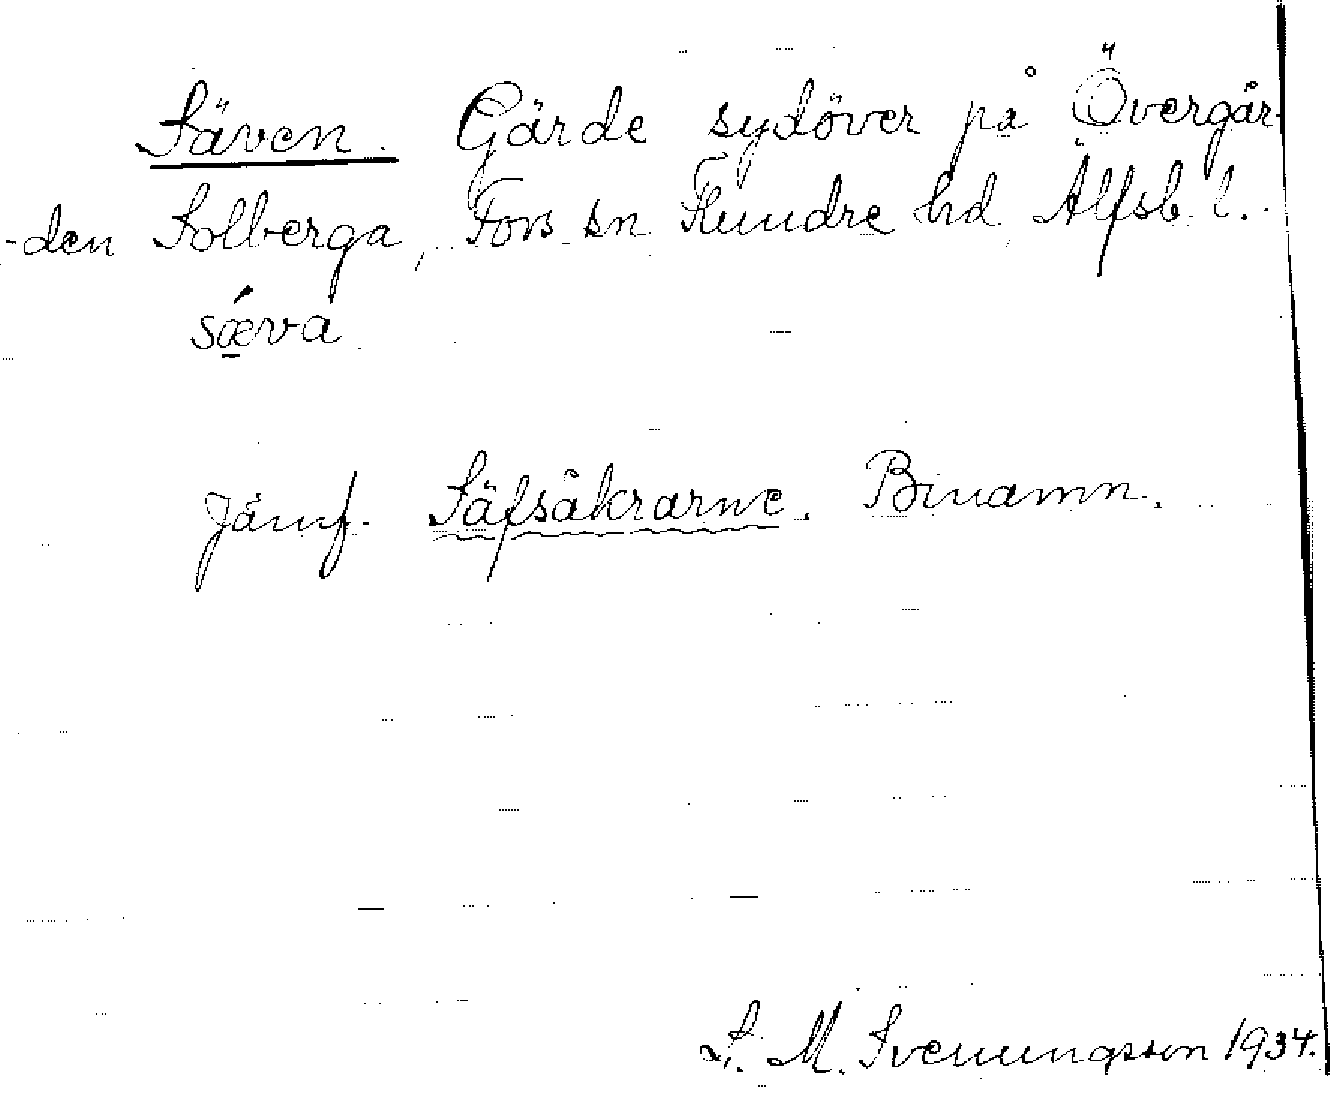 Säven. Gärde sydöver på Övergår-
-den Solberga, Fors sn Flundre hd Älfsb. l.
sǽva
Jämf. Säfsåkrarne. Binamn.
S. M. Svenungsson 1934.